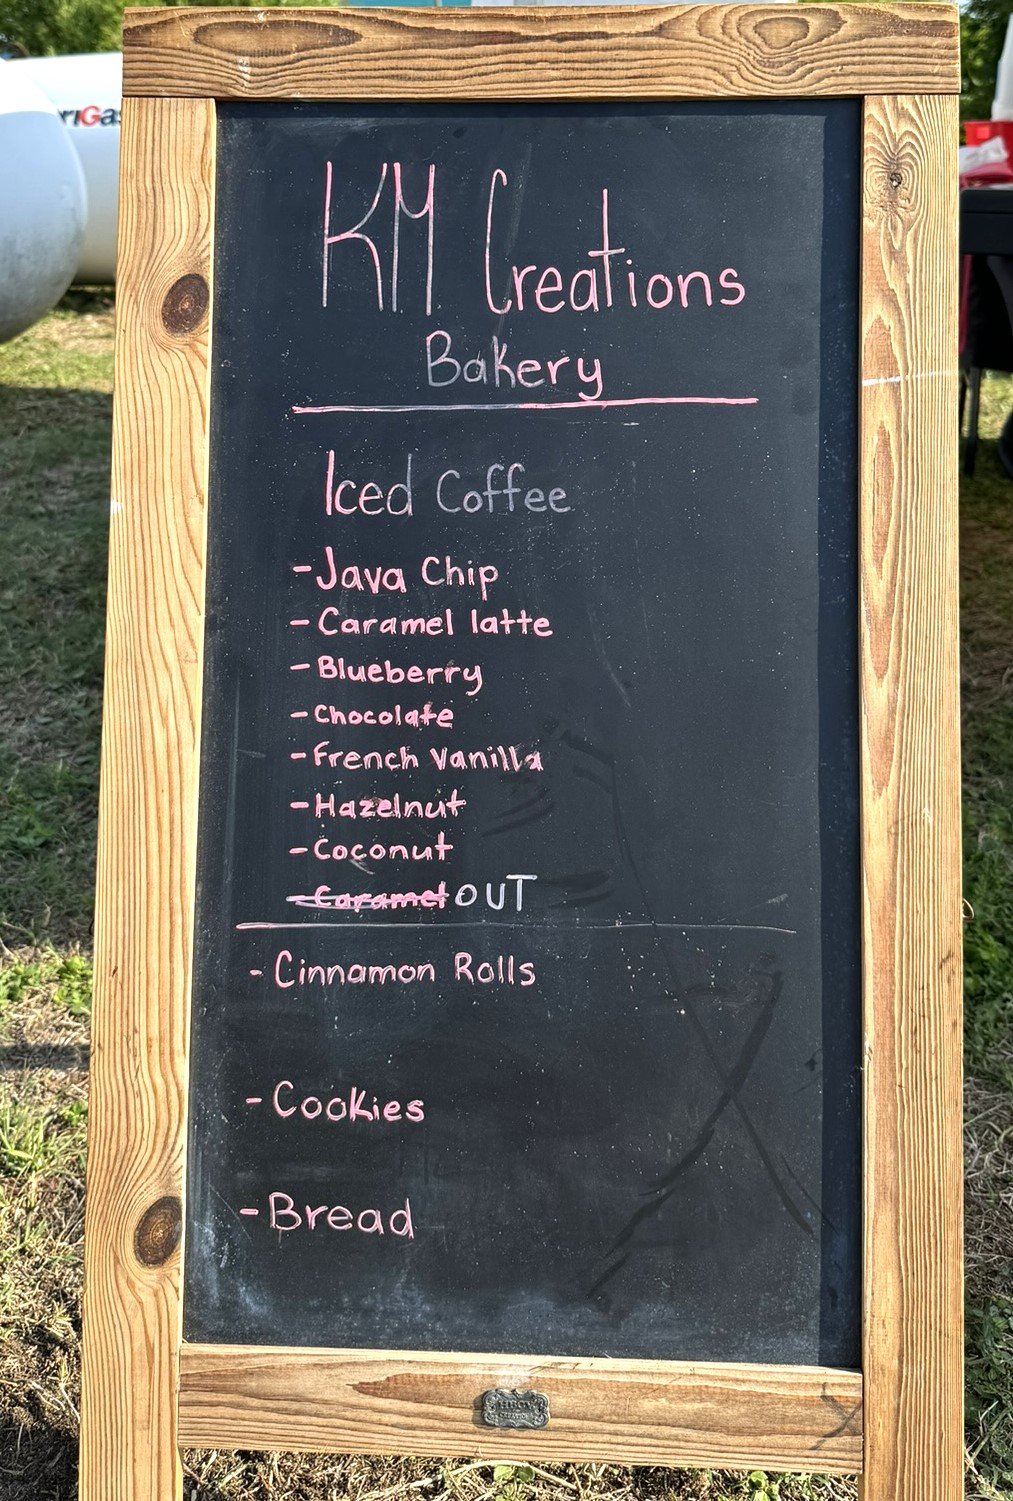 riGas
KM Creations
Bakery
Iced Coffee
-Java Chip
- Caramel latte
- Blueberry
- Chocolate
- French Vanilla
- Hazelnut
- Coconut
- Caramel OUT
- Cinnamon Rolls
- Cookies
- Bread